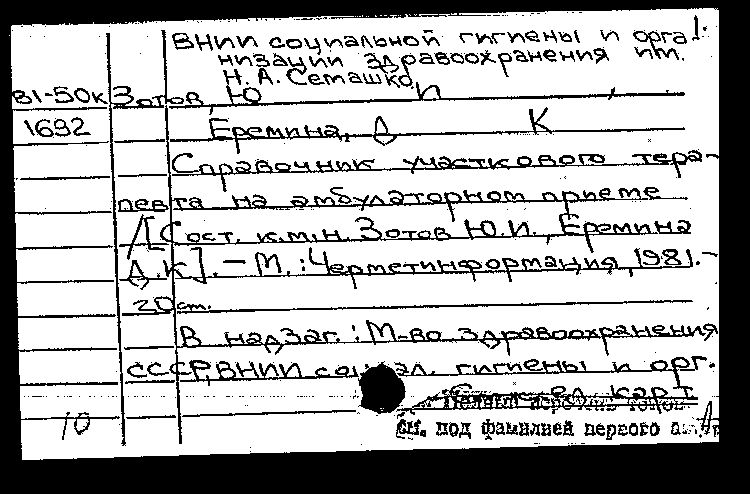 ВНИИ социальной гигиены и орга- 1.
низации здравоохранения им.
Н. А. Семашко
81-50к Зотов, Ю И ,
1692 Еремина, Д К
Справочник участкового тера-
певта на амбулаторном приеме
/[Сост. к.м.н. Зотов Ю.И., Еремина
Д.К]. – М.: Черметинформация, 1981. –
20 см.
В надзаг.: М-во здравоохранения
СССР, ВНИИ социал. гигиены и орг.
карт
Полный перечень
10 см. под фамилией первого